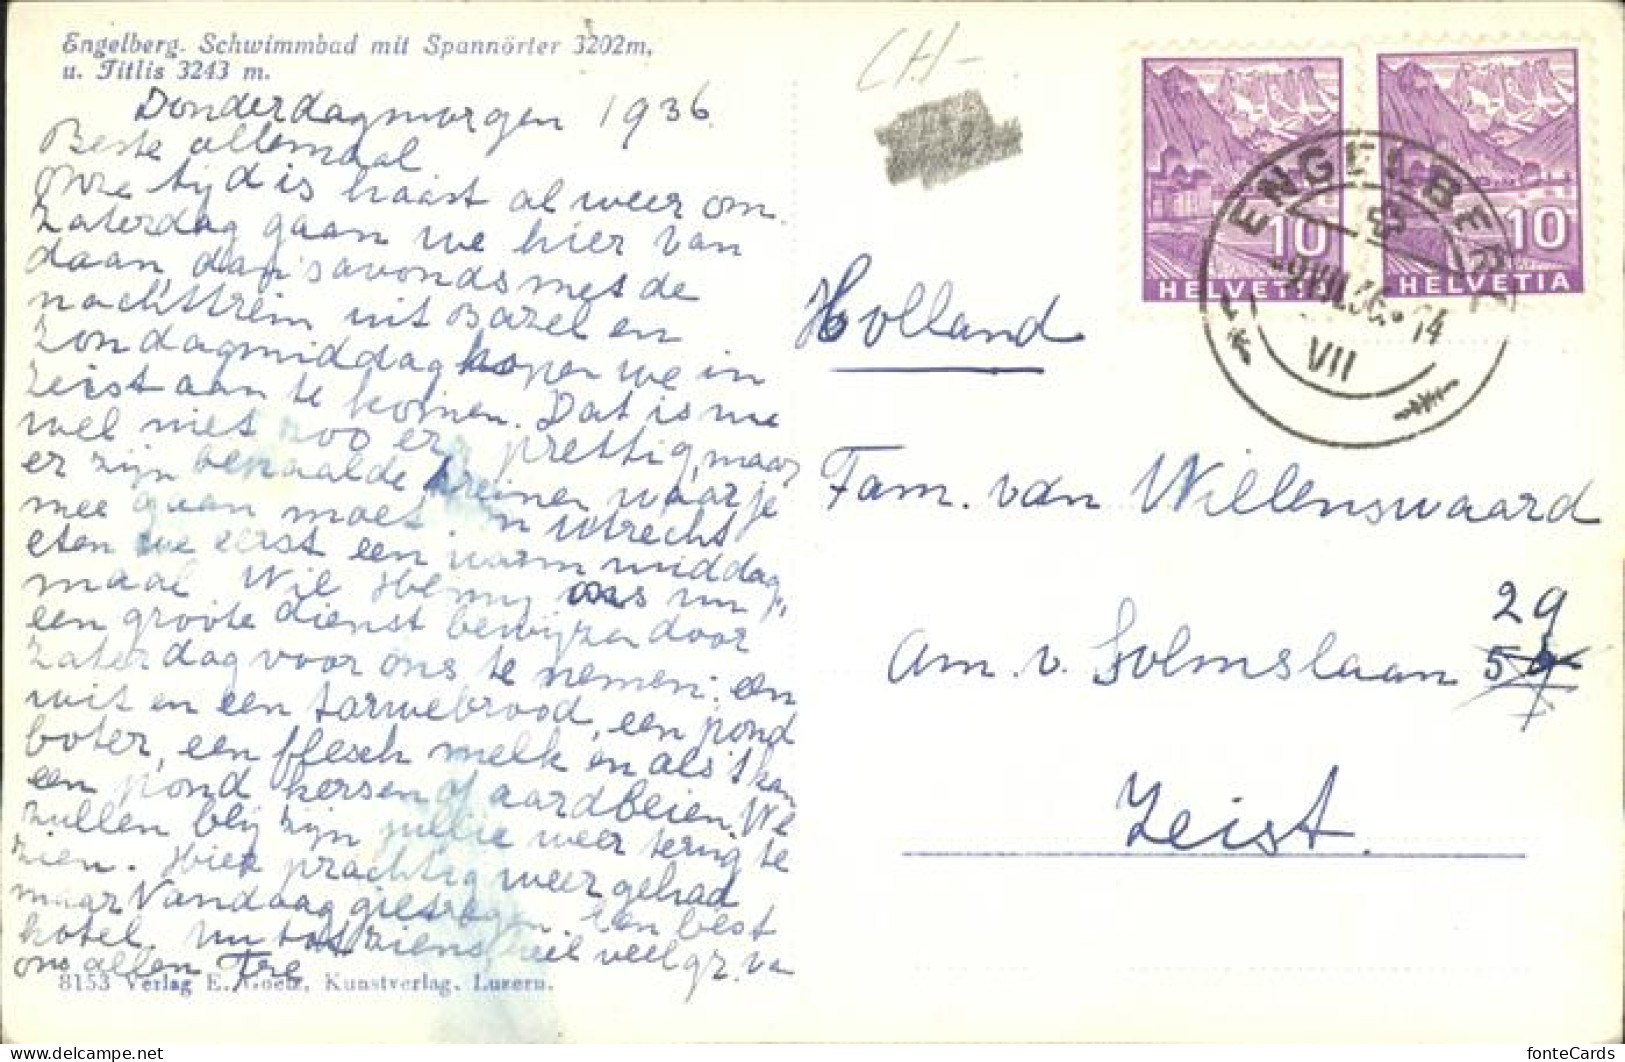 Engelberg. Schwimmbad mit Spannörter 3202m,
u. Titlis 3243 m.
Donderdagmorgen 1936.
Beste allemaal
Onze tijd is haast al weer om.
Zaterdag gaan we hier van
daan, dan 's avonds met de
nachttrein uit Bazel en
Zondagmiddag hopen we in
Zeist aan te komen. Dat is nu
wel niet zoo erg prettig, maar
er zijn bepaalde treinen waar je
mee gaan moet. In Utrecht
eten we eerst een warm middag
maal. Wil Henny ons nu
een groote dienst bewijzen door
Zaterdag voor ons te nemen: een
wit en een tarwebrood, een pond
boter, een flesch melk en als 't kan
een pond kersen of aardbeien. We
zullen blij zijn jullie weer terug te
zien. Hier prachtig weer gehad
maar vandaag gietregen. Een best
hotel. Nu tot ziens heel veel gr. van
ons allen
8153 Verlag E. Goetz, Kunstverlag, Luzern.
CH-
HELVETIA 10
HELVETIA 10
ENGELBERG
VII
Holland
Fam. van Willenswaard
Am. v. Solmslaan 29
Zeist.
fonteCards